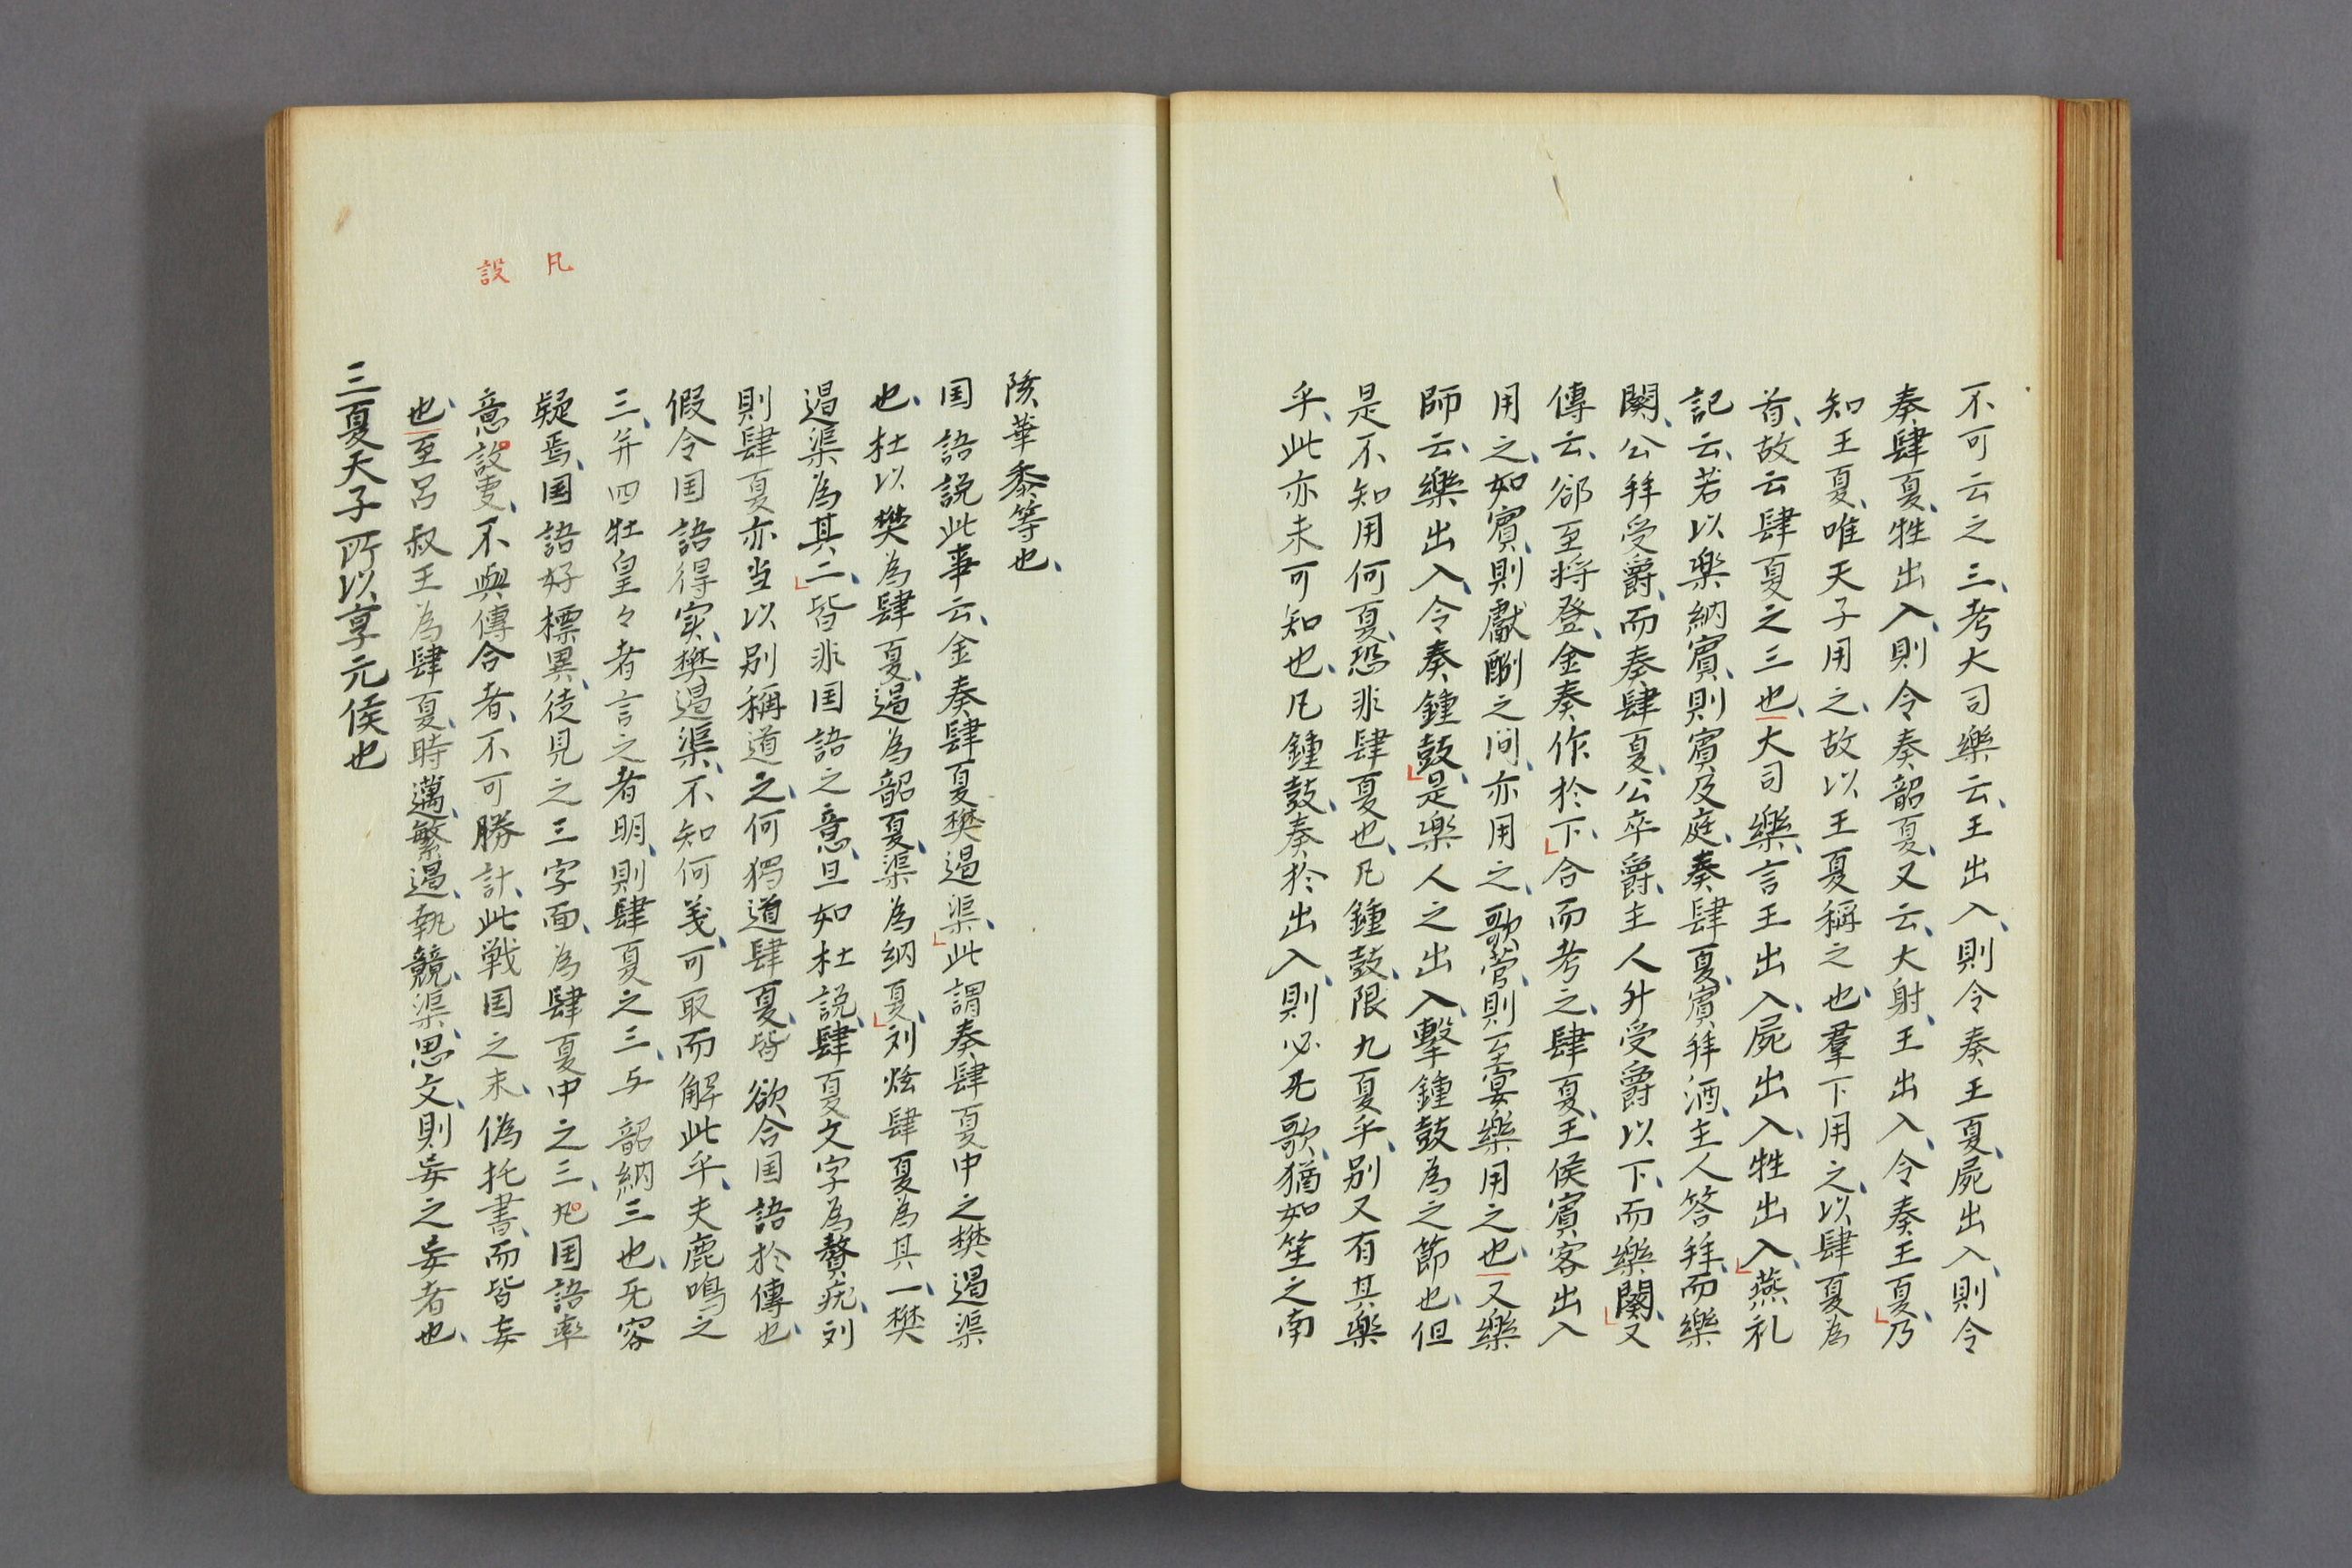 不可云之三、考大司樂云、王出入、則令奏王夏、屍出入、則令
奏肆夏、牲出入、則令奏韶夏、又云、大射、王出入、令奏王夏、乃
知王夏、唯天子用之、故以王夏稱之也、羣下用之、以肆夏為
首、故云肆夏之三也、大司樂、言王出入、屍出入、牲出入、燕礼
記云、若以楽納賓、則賓及庭、奏肆夏、賓拜酒、主人答拜、而樂
闋、公拜受爵、而奏肆夏、公卒爵、主人升受爵以下、而樂闋、又
傳云、郤至将登、金奏作於下、合而考之、肆夏、王侯賓客出入
用之、如賓、則獻酬之间、亦用之、歌菅、則至宴樂用之也、又樂
師云、樂出入、令奏鍾鼓、是楽人之出入、擊鍾鼓為之節也、但
是不知用何夏、恐非肆夏也、凡鍾鼓、限九夏乎、别又有其楽
乎、此亦未可知也、凡鍾鼓、奏於出入、則必旡歌、猶如笙之南
陔華黍等也、
国語説此事云、金奏肆夏樊遏渠、此謂奏肆夏中之樊遏渠
也、杜以樊為肆夏、遏為韶夏、渠為納夏、刘炫肆夏為其一、樊
遏渠為其二、皆非国語之意、旦如杜説、肆夏文字為贅疣、刘
則肆夏亦当以别稱道之、何獨道肆夏、皆欲合国語於傳也、
假令国語得实、樊遏渠、不知何義、可取而解此乎、夫鹿鳴之
三、并四牡皇々者言之者明、則肆夏之三、与韶納三也、旡容
疑焉、国語好標異、徒見之三字面、為肆夏中之三、凡国語率
意設吏、不與傳合者、不可勝計、此戦国之末、偽托書、而皆妄
也、至呂叔玉為肆夏、時邁、繁遏、執競、渠、思文、則妄之妄者也、
三夏天子所以享元侯也
凡
設